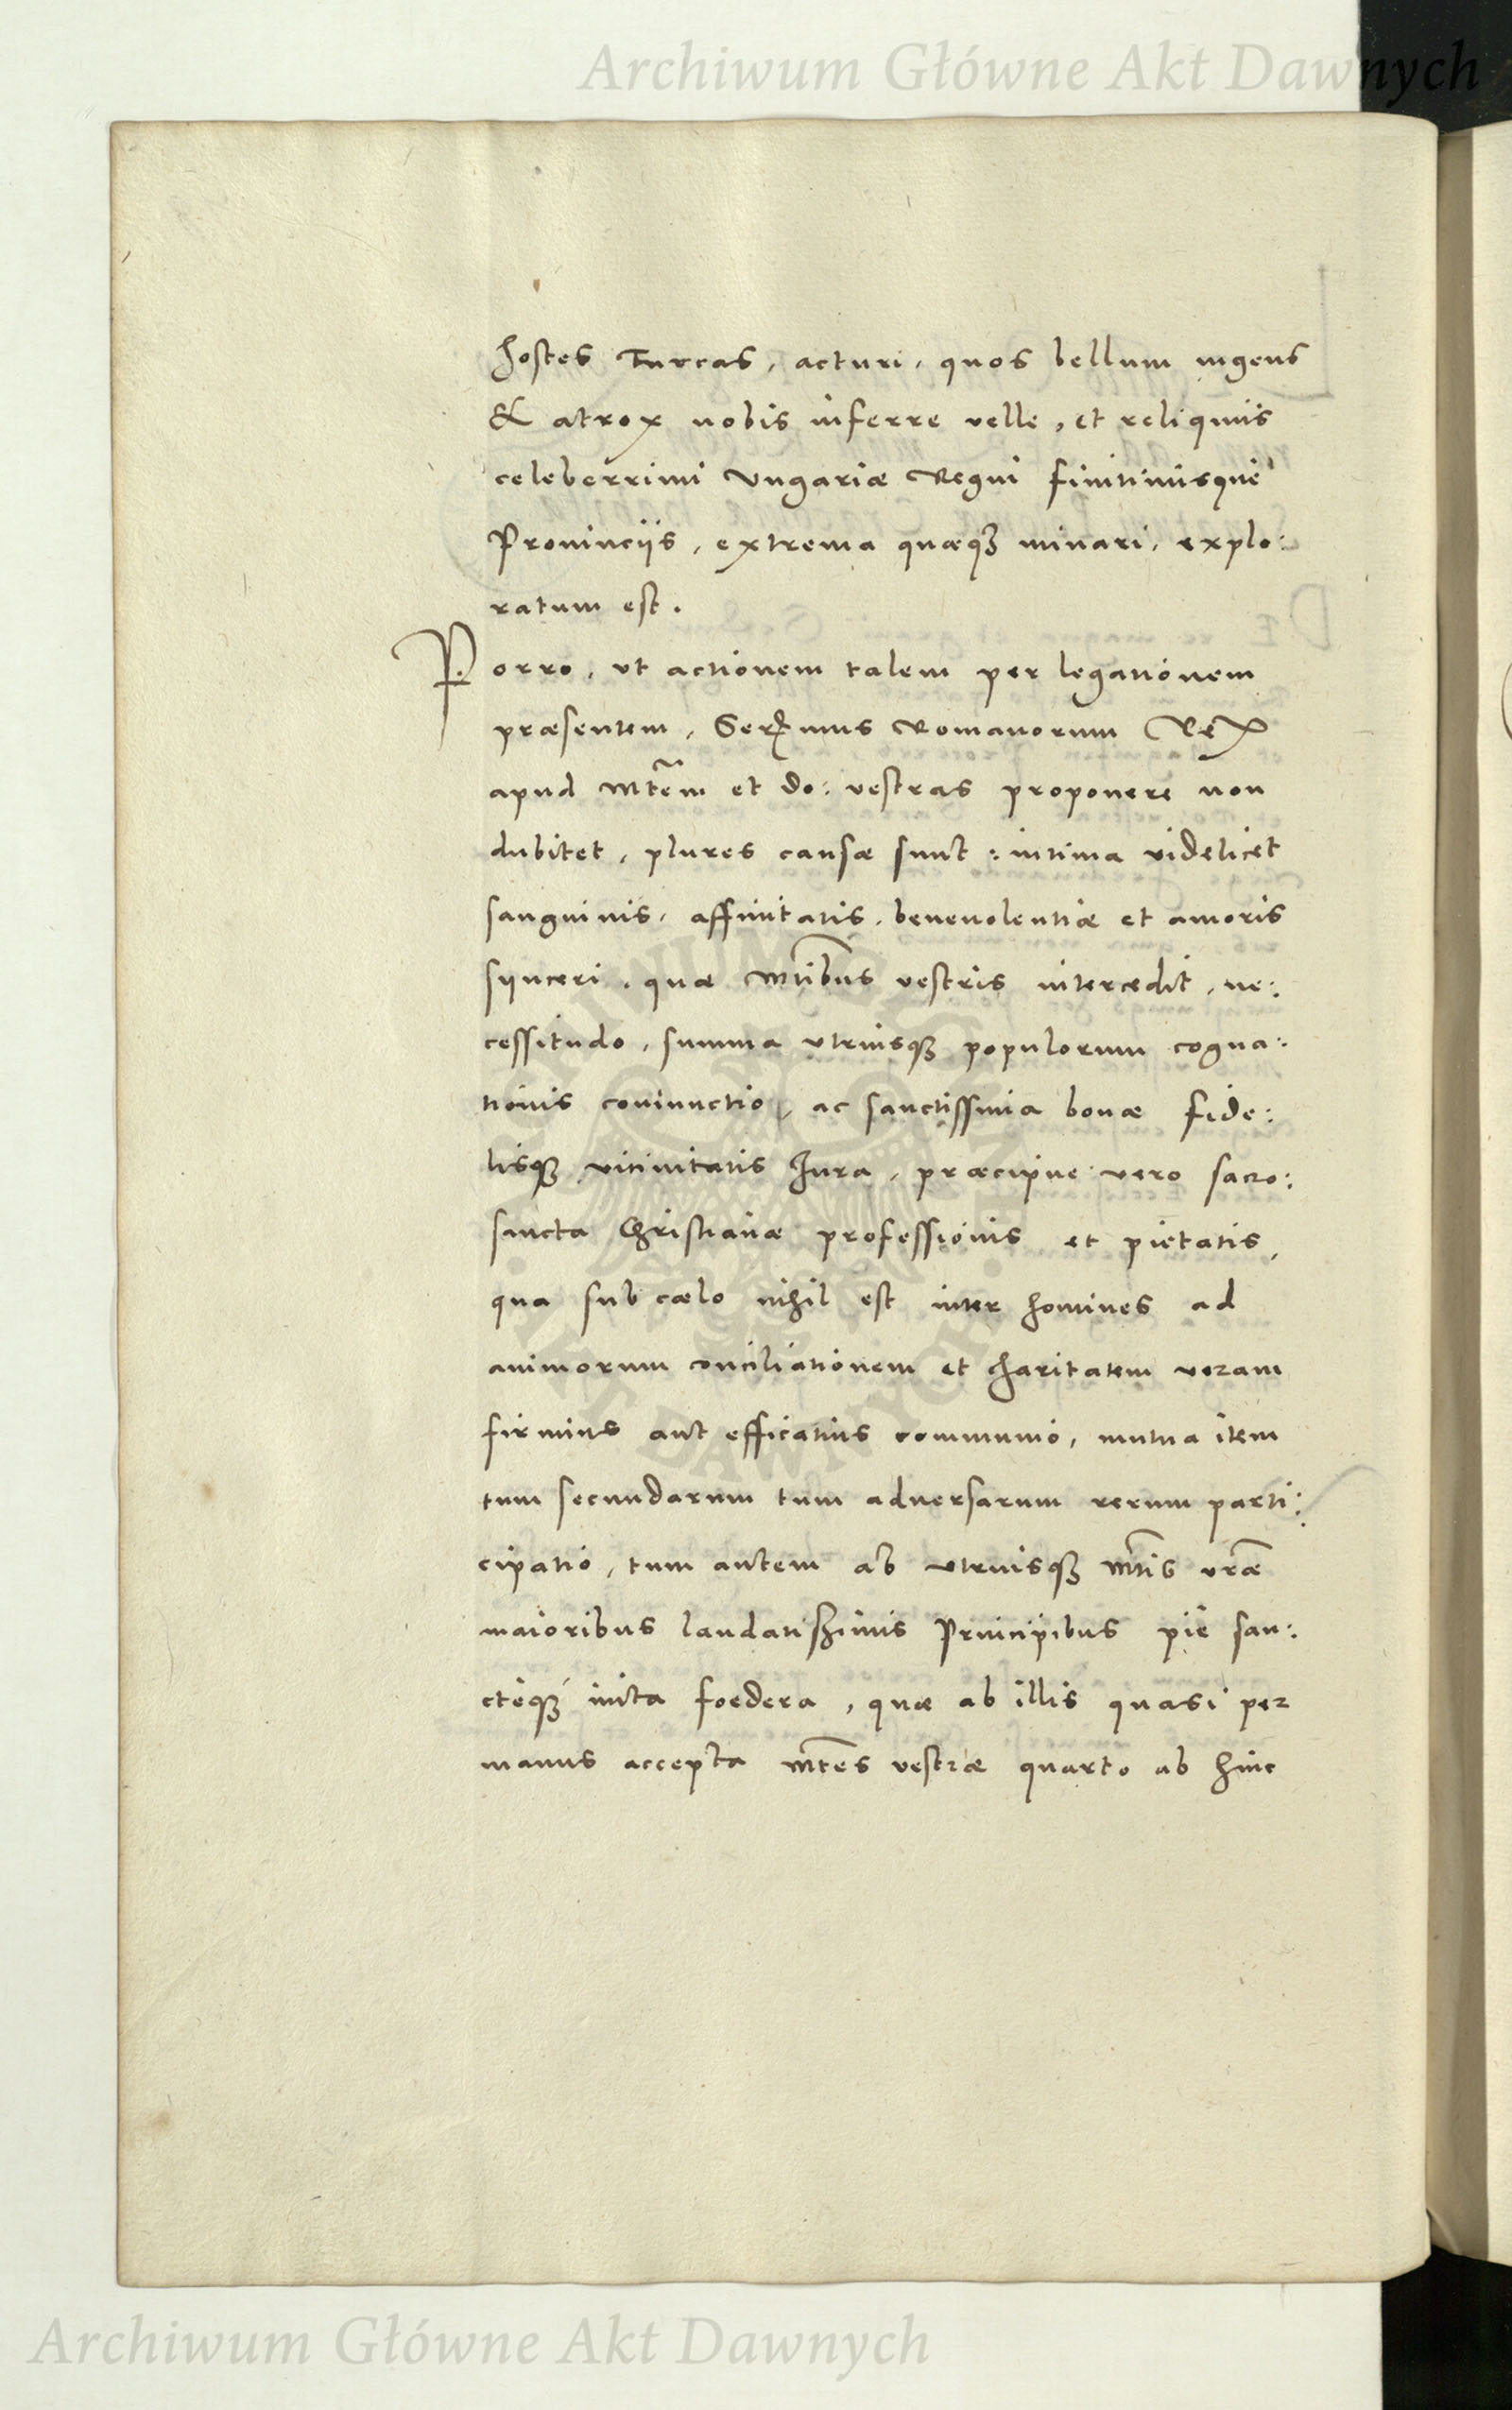 Archiwum Główne Akt Dawnych
hostes Turcas, acturi, quos bellum ingens
& atrox nobis inferre velle, et reliquiis
celeberrimi Ungariæ Regni finitimisque
Provinciis, extrema quæq3 minari, explo:
ratum est.
Porro, ut actionem talem per legationem
præsentem, Serꝰmus Romanorum Rex
apud Mtẽm et do: vestras proponere non
dubitet, plures causæ sunt: intima videlicet
sanguinis, affinitatis, benevolentiæ et amoris
synceri, quæ Mtibus vestris intercedit, ne:
cessitudo, summa utriusq3 populorum cogna:
tionis coniunctio, ac sanctissima bonæ fide:
lisq3 vicinitatis Jura, præcipue vero sacro:
sancta Christianæ professionis et pietatis,
qua sub cælo nihil est inter homines ad
animorum conciliationem et charitatem veram
firmius aut efficatius communio, mutua item
tum secundarum tum adversarum rerum parti:
cipatio, tum autem ab utriusq3 Mtis vræ
maioribus laudatissimis Principibus pie san:
cteq3 inita foedera, quæ ab illis quasi per
manus accepta Mtes vestræ quarto ab hinc
Archiwum Główne Akt Dawnych